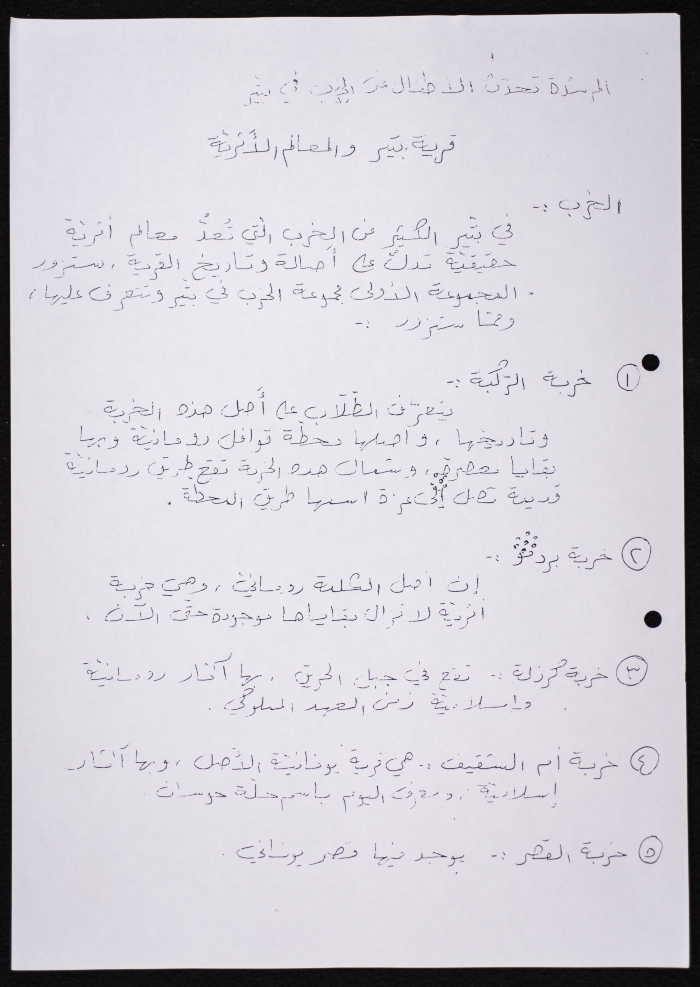 المرشدة تحدّث الأطفال عن الخرب في بتّير
قرية بتّير والمعالم الأَثريّة
الخرب :-
في بتّير الكثير من الخِرب التي تُعدُّ معالم أثريّة
حقيقيّة تدلّ على أصالة وتاريخ القرية ، ستزور
المجموعة الأولى مجموعة الخرب في بتير وتتعرف عليها ،
وممّا ستزور :-
١ خربة الرّكبة :-
يتعرّف الطّلّاب على أَصل هذه الخربة
وتاريخها ، وأصلها محطّة قوافل رومانيّة وبها
بقايا معصرة ، وشمال هذه الخربة تقع طريق رومانيّة
قديمة تصل إلى غزة اسمها طريق المحطّة .
٢ خربة بردقوق :-
إن أصل الكلمة رومانيّ ، وهي خربة
أثريّة لا تزال بقاياها موجودة حتّى الآن .
٣ خربة كرزلة :- تقع في جبل الحريق ، بها آثار رومانيّة
وإسلاميّة زمن العهد المملوكي .
٤ خربة أم الشقيف :- هي قرية يونانيّة الأصل ، وبها آثار
إسلاميّة ، وتعرف اليوم باسم حلّة حوسان
٥ خربة القصر :- يوجد فيها قصر يوناني .